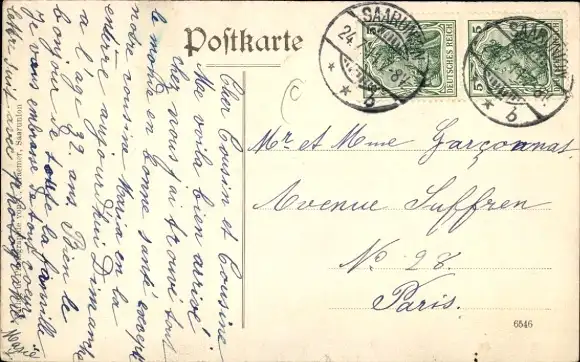 Postkarte
SAARUNION
24.
b
DEUTSCHES REICH
5
SAARUNION
b
DEUTSCHES REICH
5
Mr et Mme Garçonnas
Avenue Suffren
No. 28.
Paris.
6546
Cher Cousin et Cousine
Me voila bien arrivé
chez nous j'ai trouvé tout
le monde en bonne santé excepté
notre cousine Maria on l'a
entérre aujourd'hui Dimanche
a l'age 92 ans. Bien le
bonjour de toute la famille
Je vous embrasse de tout coeur
Marie
Saarunion